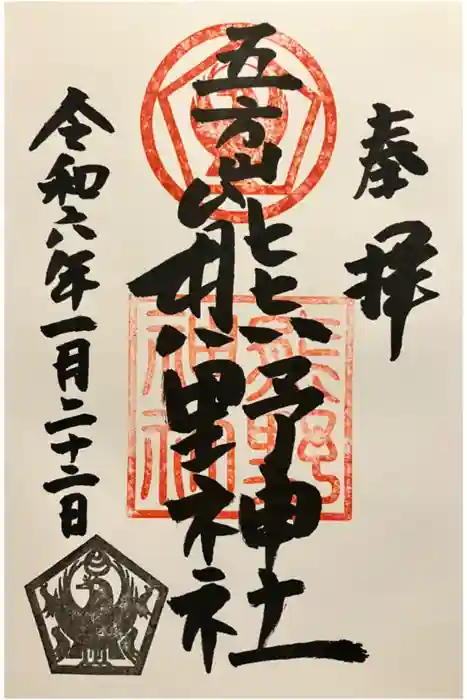 奉拝
五方山熊野神社
令和六年一月二十二日
熊野
神社